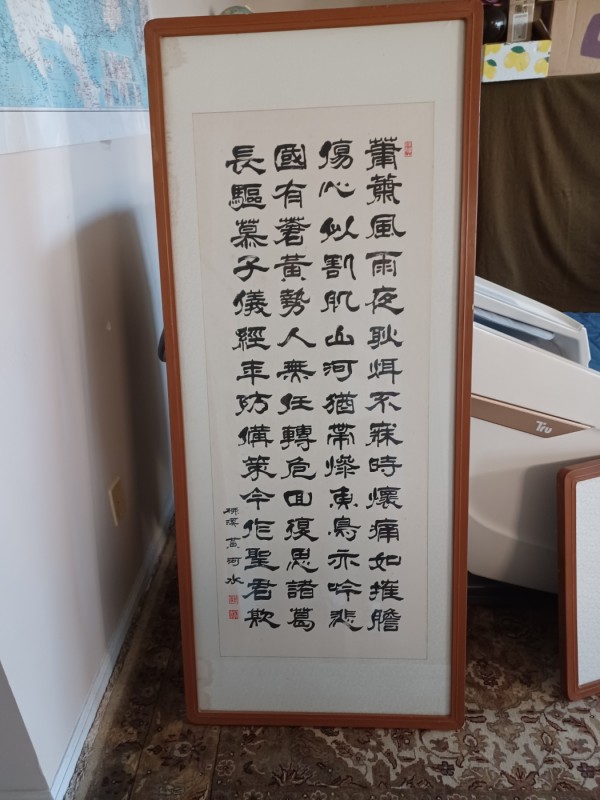 蕭蕭風雨夜耿耿不寐時懷痛如摧膽
傷心似割肌山河猶帶慘魚鳥亦吟悲
國有蒼黃勢人無任轉危回復思諸葛
長驅慕子儀經年防備策今作聖君欺
溪 河水
Tru